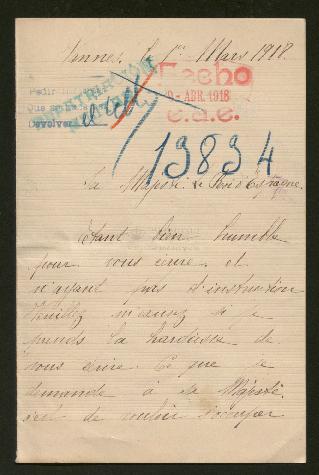 Vannes, le 1er Mars 1918.
Pedir
Que se haga
Devolver
Hecho
9 - ABR. 1918
e.a.e.
13834
Sa Majesté le Roi d'Espagne.
Etant bien humble
pour vous ecrire et
n'ayant pas d'instruction
Veuillez m'excusez si je
prends la hardiesse de
vous ecrire. Ce que je
demande à sa Majesté
c'est de vouloir s'occuper